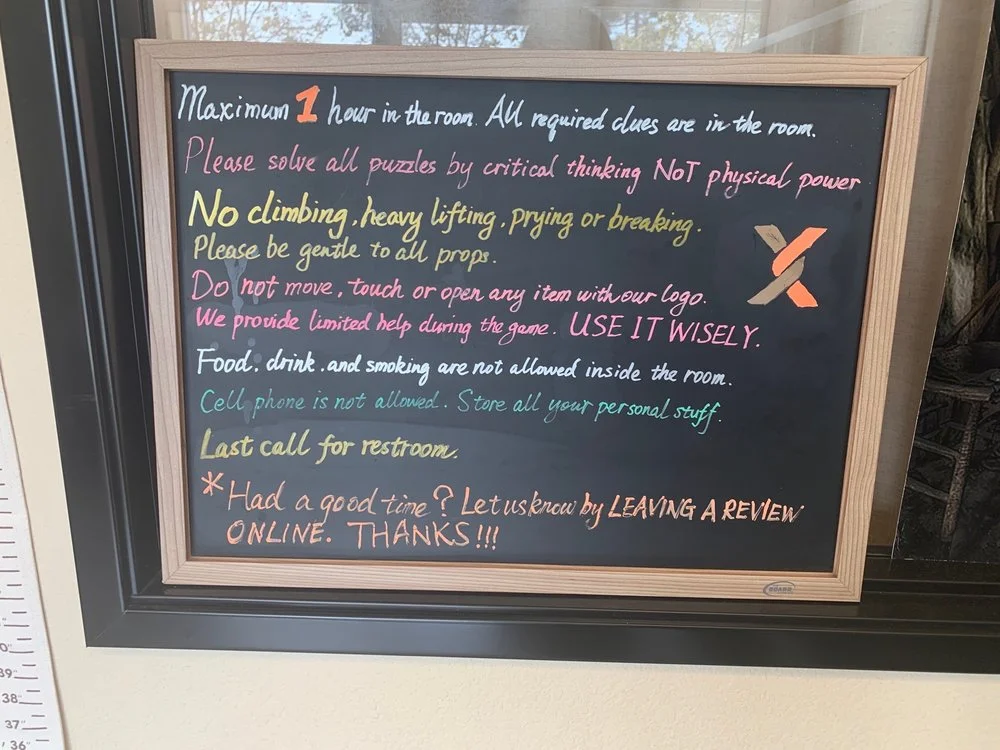 Maximum 1 hour in the room. All required clues are in the room.
Please solve all puzzles by critical thinking NOT physical power
No climbing, heavy lifting, prying or breaking.
Please be gentle to all props.
Do not move, touch or open any item with our logo.
We provide limited help during the game. USE IT WISELY.
Food, drink, and smoking are not allowed inside the room.
Cell phone is not allowed. Store all your personal stuff.
Last call for restroom.
*Had a good time? Let us know by LEAVING A REVIEW
ONLINE. THANKS!!!
BOARD
39"
38"
37"
36"